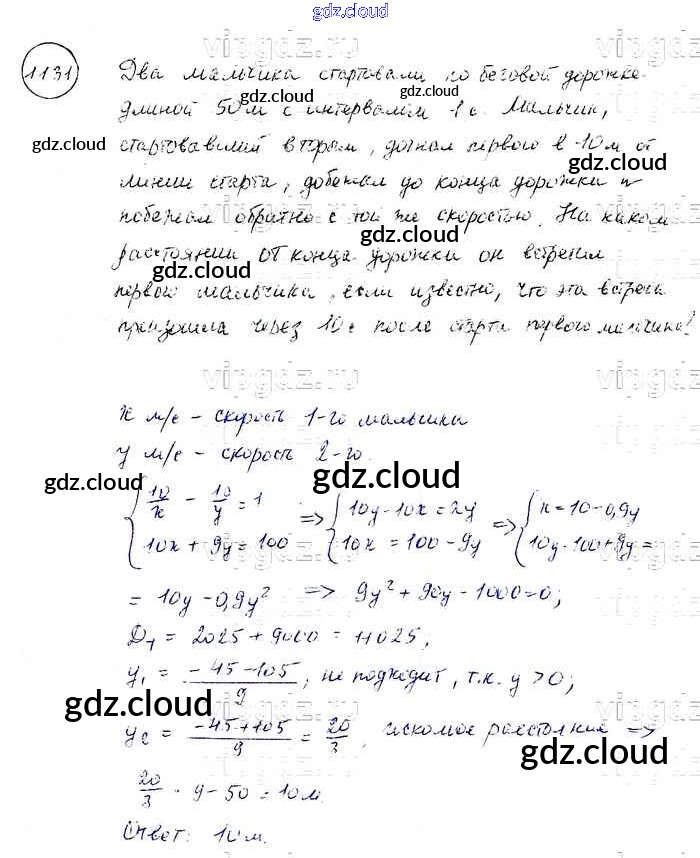 gdz.cloud
vipgdz.ru
1131 Два мальчика стартовали по беговой дорожке
длиной 50 м с интервалом 1 с. Мальчик,
gdz.cloud
стартовавший вторым, догнал первого в 10 м от
gdz.cloud
линии старта, добежал до конца дорожки и
побежал обратно с той же скоростью. На каком
gdz.cloud
расстоянии от конца дорожки он встретил
gdz.cloud
первого мальчика, если известно, что эта встреча
произошла через 10 с после старта первого мальчика?
vipgdz.ru
x м/с - скорость 1-го мальчика
y м/с - скорость 2-го.
gdz.cloud
gdz.cloud
{ 10/x - 10/y = 1 => { 10y-10x=xy => { x=10-0,9y
10x + 9y = 100 { 10x = 100-9y { 10y-100+9y=
= 10y-0,9y² => 9y²+90y-1000=0;
D₁ = 2025+9000 = 11025,
y₁ = (-45-105)/9, не подходит, т.к. y>0;
gdz.cloud
vipgdz.ru
y₂ = (-45+105)/9 = 20/3, искомое расстояние =>
gdz.cloud
20/3 · 9-50=10м.
Ответ: 10м.
vipgdz.ru